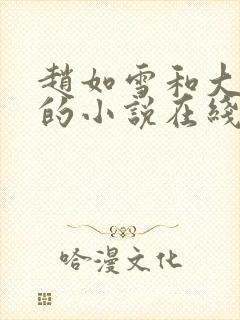 趙如雪和大
的小說在綫
哈漫文化